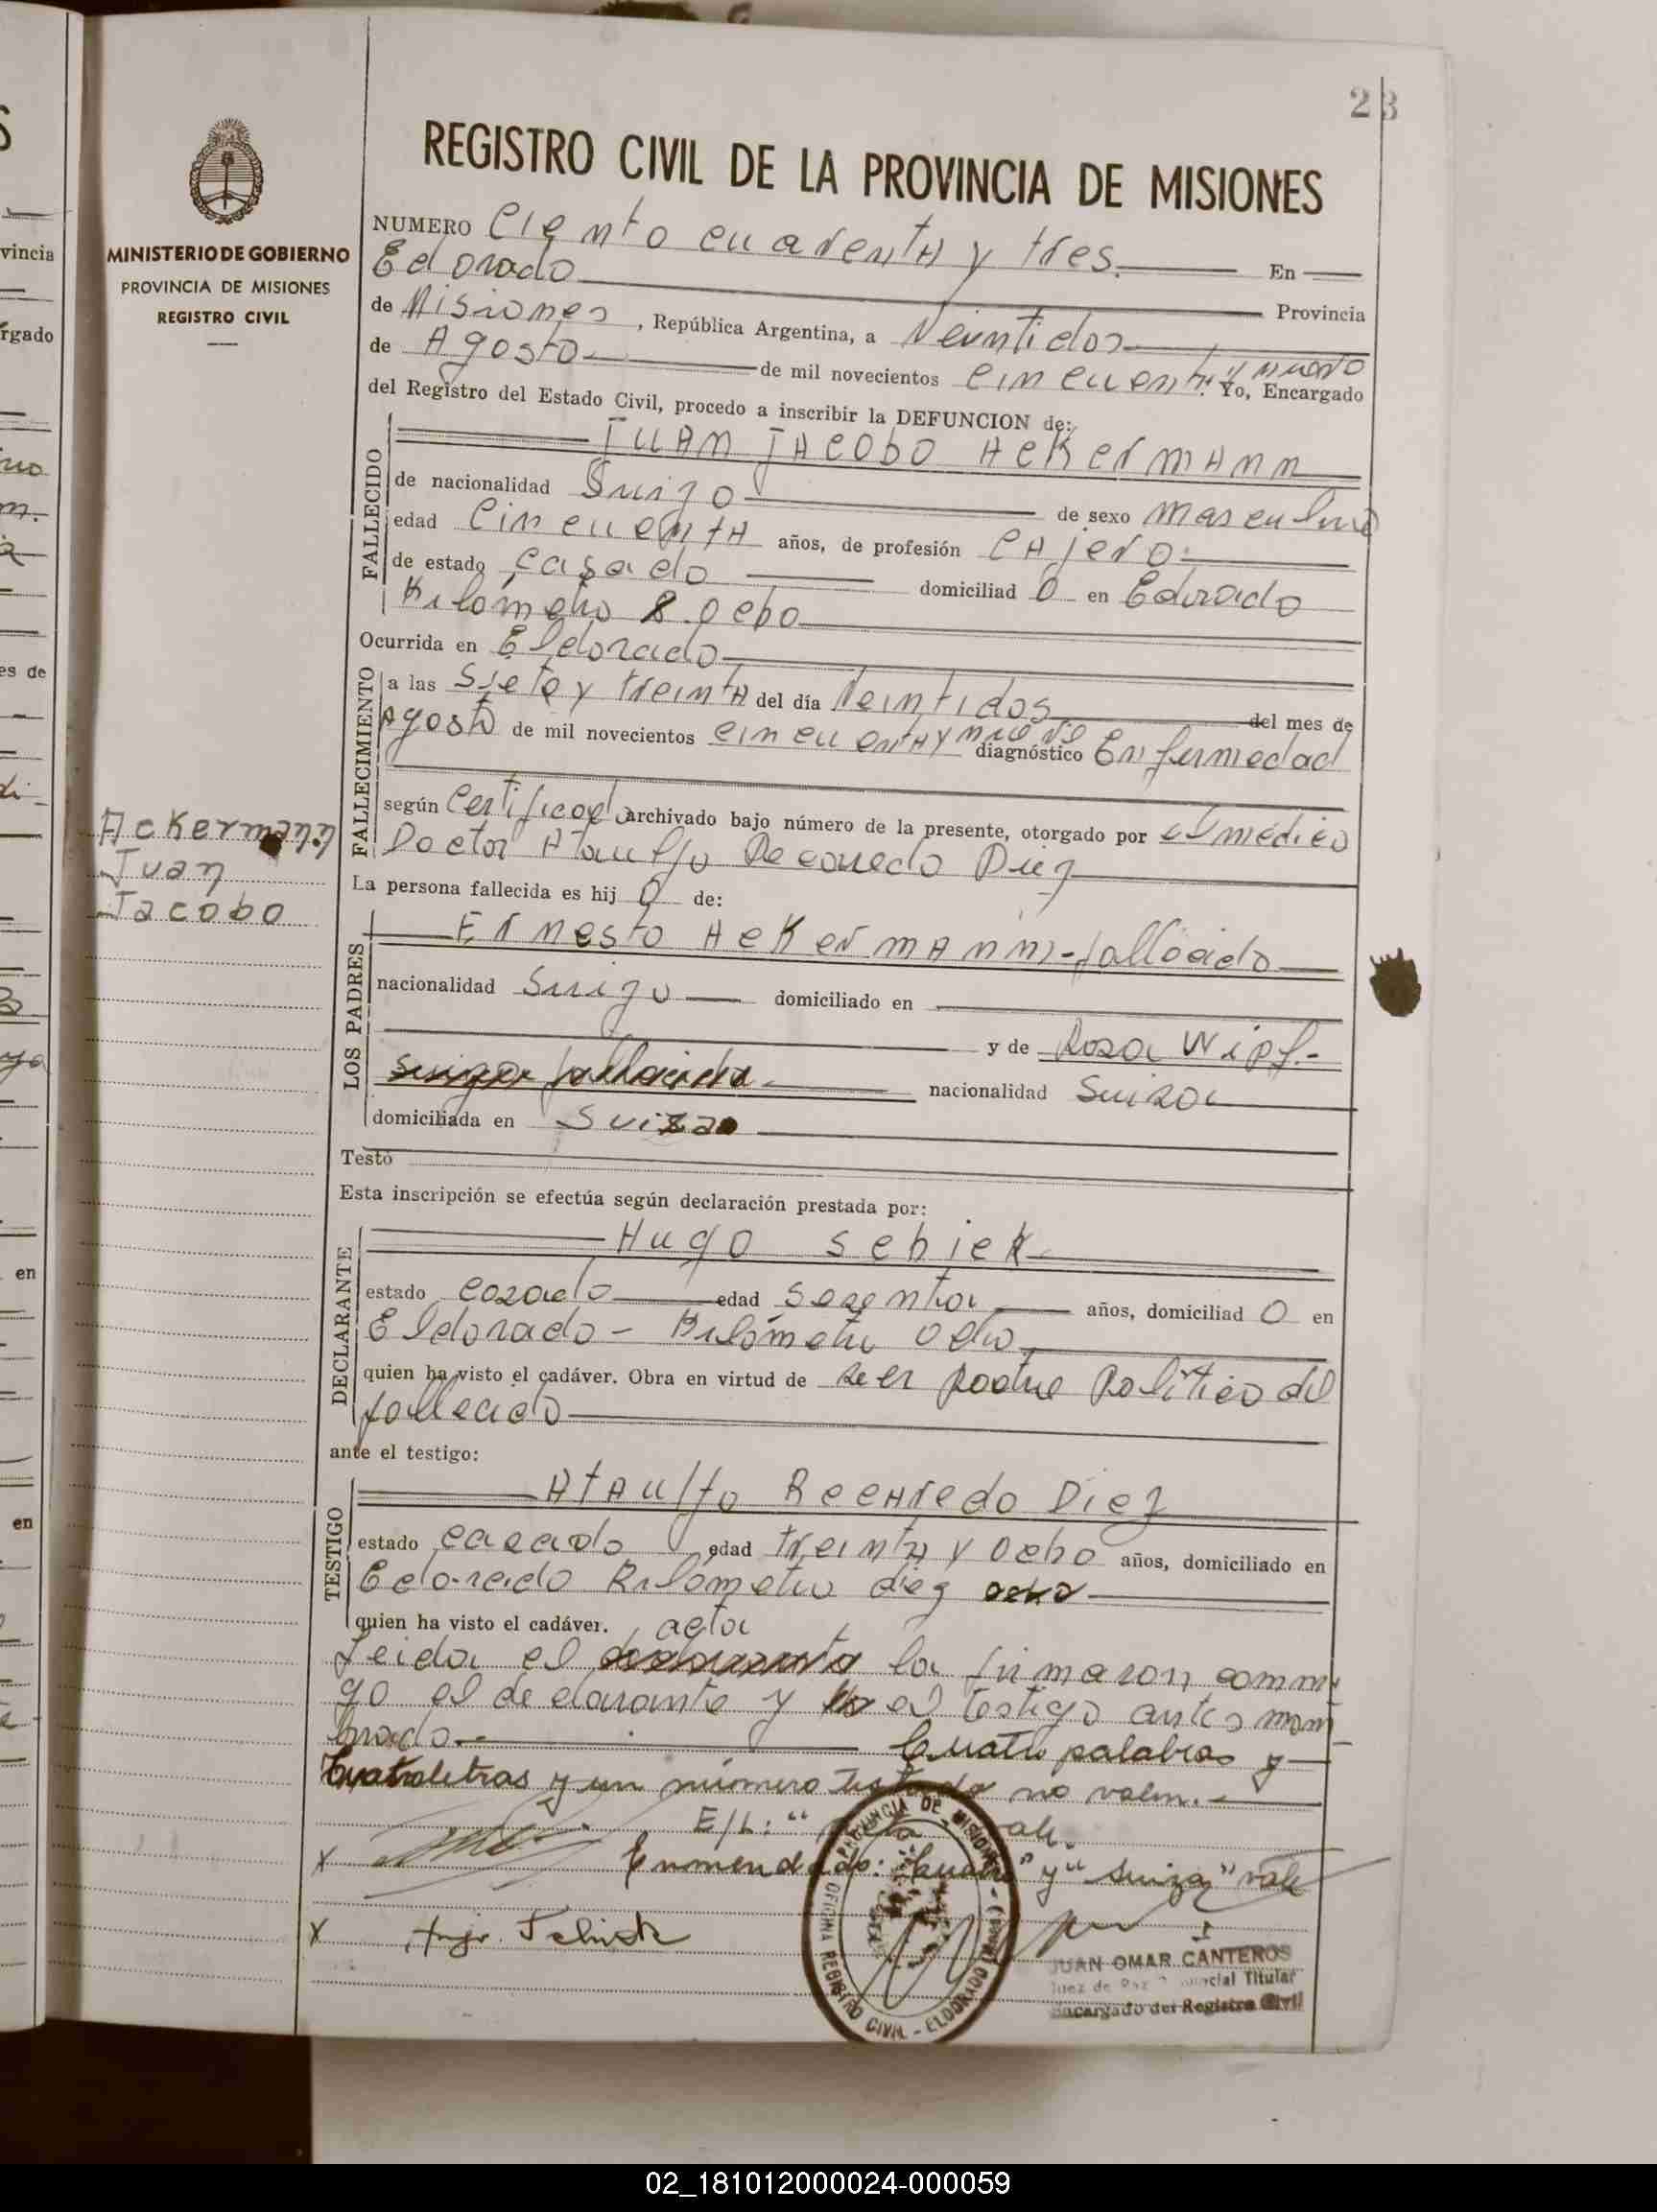 23
REGISTRO CIVIL DE LA PROVINCIA DE MISIONES
MINISTERIO DE GOBIERNO
PROVINCIA DE MISIONES
REGISTRO CIVIL
NUMERO Ciento cuarenta y tres. En
Edorado Provincia
de Misiones, República Argentina, a Veintidos
de Agosto de mil novecientos cincuenta y nueve Yo, Encargado
del Registro del Estado Civil, procedo a inscribir la DEFUNCION de:
JUAN JACOBO AcKermann
FALLECIDO
de nacionalidad Suizo de sexo masculino
edad Cincuenta años, de profesión cajero
de estado casado domiciliado en Edorado
Kilómetro 8. ocho
Ocurrida en Eldorado
FALLECIMIENTO
a las Siete y treinta del día Veintidos del mes de
Agosto de mil novecientos cincuenta y nueve diagnóstico Enfermedad
según Certificad archivado bajo número de la presente, otorgado por el médico
Doctor Ataulfo Recaredo Diez
Ackermann
Juan
Jacobo
La persona fallecida es hijo de:
LOS PADRES
Ernesto AcKermann - fallecido
nacionalidad Suizo domiciliado en
y de Rosa Wipf.-
Suiza fallecida nacionalidad Suiza
domiciliada en Suiza
Testó
Esta inscripción se efectúa según declaración prestada por:
DECLARANTE
Hugo Schick
estado casado edad sesenta años, domiciliado en
Eldorado - Kilómetro ocho,
quien ha visto el cadáver. Obra en virtud de ser padre político del
fallecido
ante el testigo:
TESTIGO
Ataulfo Recaredo Diez
estado casado edad treinta y ocho años, domiciliado en
Edorado Kilómetro diez ocho
quien ha visto el cadáver. acta
Leida el la firmaron conmi
go el declarante y el testigo antes nom
brado.- Cuatro palabras y
Cuatro letras y un número testado no valen.-
E/L: "acta" vale.
x Enmendado: "Cuatro" y "Suiza" vale
x Hugo Schick
PROVINCIA DE MISIONES
OFICINA REGISTRO CIVIL - ELDORADO
JUAN OMAR CANTEROS
Juez de Paz Titular
Encargado del Registro Civil
02_181012000024-000059